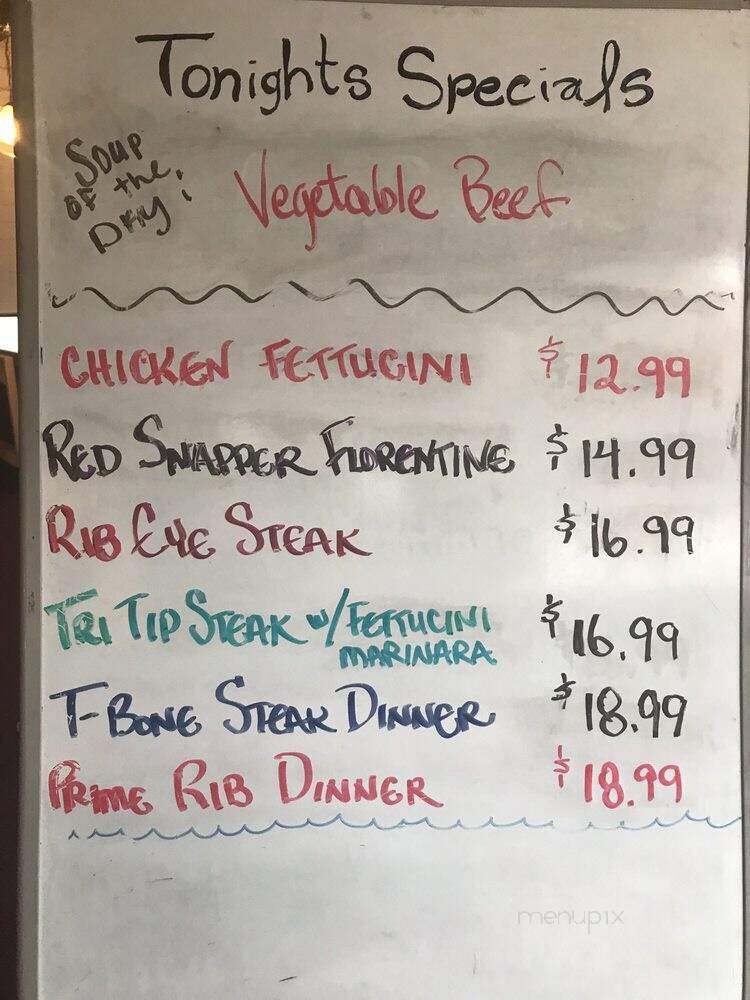 Tonights Specials
Soup
of the
Day:
Vegetable Beef
CHICKEN FETTUCINI $12.99
RED SNAPPER FLORENTINE $14.99
RIB EYE STEAK $16.99
TRI TIP STEAK w/FETTUCINI $16.99
MARINARA
T-BONE STEAK DINNER $18.99
PRIME RIB DINNER $18.99
menupix